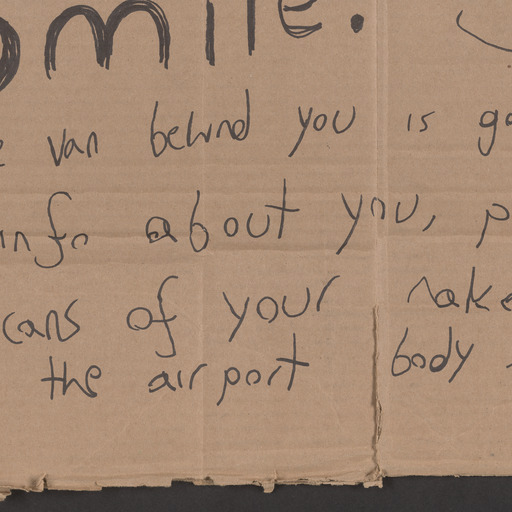 omile.
van behind you is
info about you, p
cans of your nake
the airport body